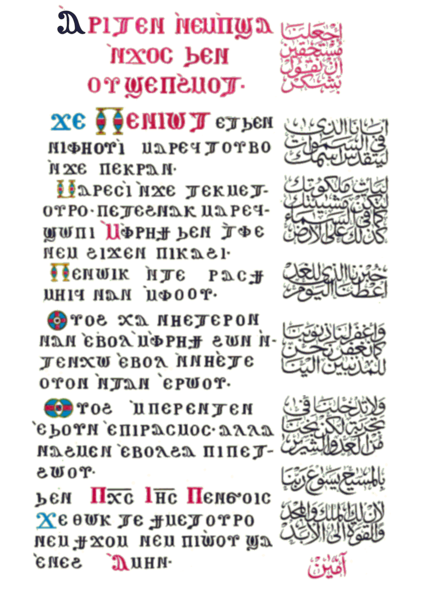 Ⲁ̀ⲣⲓⲧⲉⲛ ⲛ̀ⲉⲙⲡ̀ϣⲁ
ⲛ̀ϫⲟⲥ ϧⲉⲛ
ⲟⲩϣⲉⲡϩ̀ⲙⲟⲧ·
ϫⲉ Ⲡⲉⲛⲓⲱⲧ ⲉⲧϧⲉⲛ
ⲛⲓⲫⲏⲟⲩⲓ̀ ⲙⲁⲣⲉϥⲧⲟⲩⲃⲟ
ⲛ̀ϫⲉ ⲡⲉⲕⲣⲁⲛ·
Ⲙⲁⲣⲉⲥⲓ̀ ⲛ̀ϫⲉ ⲧⲉⲕⲙⲉⲧ-
ⲟⲩⲣⲟ· ⲡⲉⲧⲉϩⲛⲁⲕ ⲙⲁⲣⲉϥ-
ϣⲱⲡⲓ Ⲙ̀ⲫⲣⲏϯ ϧⲉⲛ ⲧ̀ⲫⲉ
ⲛⲉⲙ ϩⲓϫⲉⲛ ⲡⲓⲕⲁϩⲓ·
Ⲡⲉⲛⲱⲓⲕ ⲛ̀ⲧⲉ ⲣⲁⲥϯ
ⲙⲏⲓϥ ⲛⲁⲛ ⲙ̀ⲫⲟⲟⲩ·
Ⲟⲩⲟϩ ⲭⲁ ⲛⲏⲉⲧⲉⲣⲟⲛ
ⲛⲁⲛ ⲉ̀ⲃⲟⲗ ⲙ̀ⲫⲣⲏϯ ϩⲱⲛ ⲛ̀-
ⲧⲉⲛⲭⲱ ⲉ̀ⲃⲟⲗ ⲛ̀ⲛⲏⲉ̀ⲧⲉ
ⲟⲩⲟⲛ ⲛ̀ⲧⲁⲛ ⲉ̀ⲣⲱⲟⲩ·
Ⲟⲩⲟϩ ⲙ̀ⲡⲉⲣⲉⲛⲧⲉⲛ
ⲉ̀ϧⲟⲩⲛ ⲉ̀ⲡⲓⲣⲁⲥⲙⲟⲥ· ⲁⲗⲗⲁ
ⲛⲁϩⲙⲉⲛ ⲉ̀ⲃⲟⲗϩⲁ ⲡⲓⲡⲉⲧ-
ϩⲱⲟⲩ·
ϧⲉⲛ Ⲡⲭ̅ⲥ̅ Ⲓⲏ̅ⲥ̅ Ⲡⲉⲛϭⲟⲓⲥ
Ϫⲉ ⲑⲱⲕ ⲧⲉ ϯⲙⲉⲧⲟⲩⲣⲟ
ⲛⲉⲙ ϯϫⲟⲙ ⲛⲉⲙ ⲡⲓⲱ̀ⲟⲩ ϣⲁ
ⲉ̀ⲛⲉϩ Ⲁ̀ⲙⲏⲛ·
اجعلنا
مستحقين
ان نقول
بشكر
ابانا الذي
في السموات
ليتقدس اسمك
ليات ملكوتك
لتكن مشيئتك
كما في السماء
كذلك على الارض
خبزنا الذي للغد
اعطنا اليوم
واغفر لنا ذنوبنا
كما نغفر نحن
للمذنبين الينا
ولا تدخلنا في
تجربة لكن نجنا
من العدو الشرير
بالمسيح يسوع ربنا
لان لك الملك والمجد
والقوة الى الابد
آمين